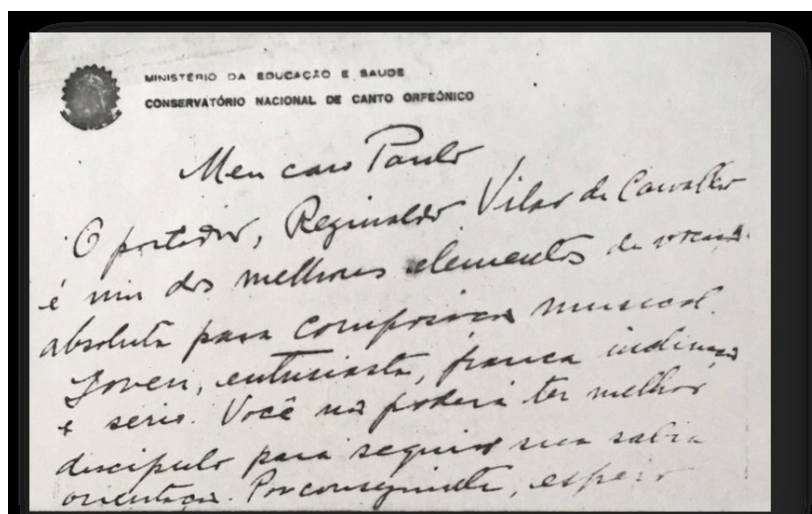 MINISTÉRIO DA EDUCAÇÃO E SAUDE
CONSERVATÓRIO NACIONAL DE CANTO ORFEÔNICO
Meu caro Paulo
O portador, Reginaldo Vilar de Carvalho
é um dos melhores elementos de vocação
absoluta para composição musical.
Joven, entusiasta, franca inclinação
e serio. Você não poderá ter melhor
discipulo para seguir sua sabia
orientação. Por conseguinte, espero